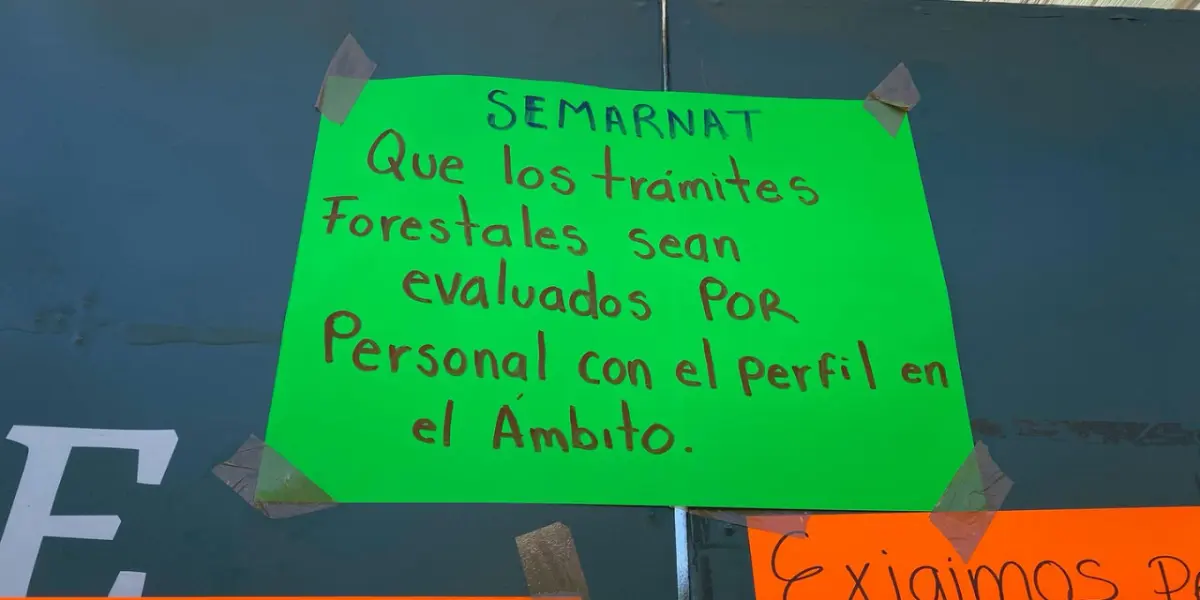 SEMARNAT
Que los trámites
Forestales sean
evaluados POR
Personal con el perfil en
el Ámbito.
E
Exigimos